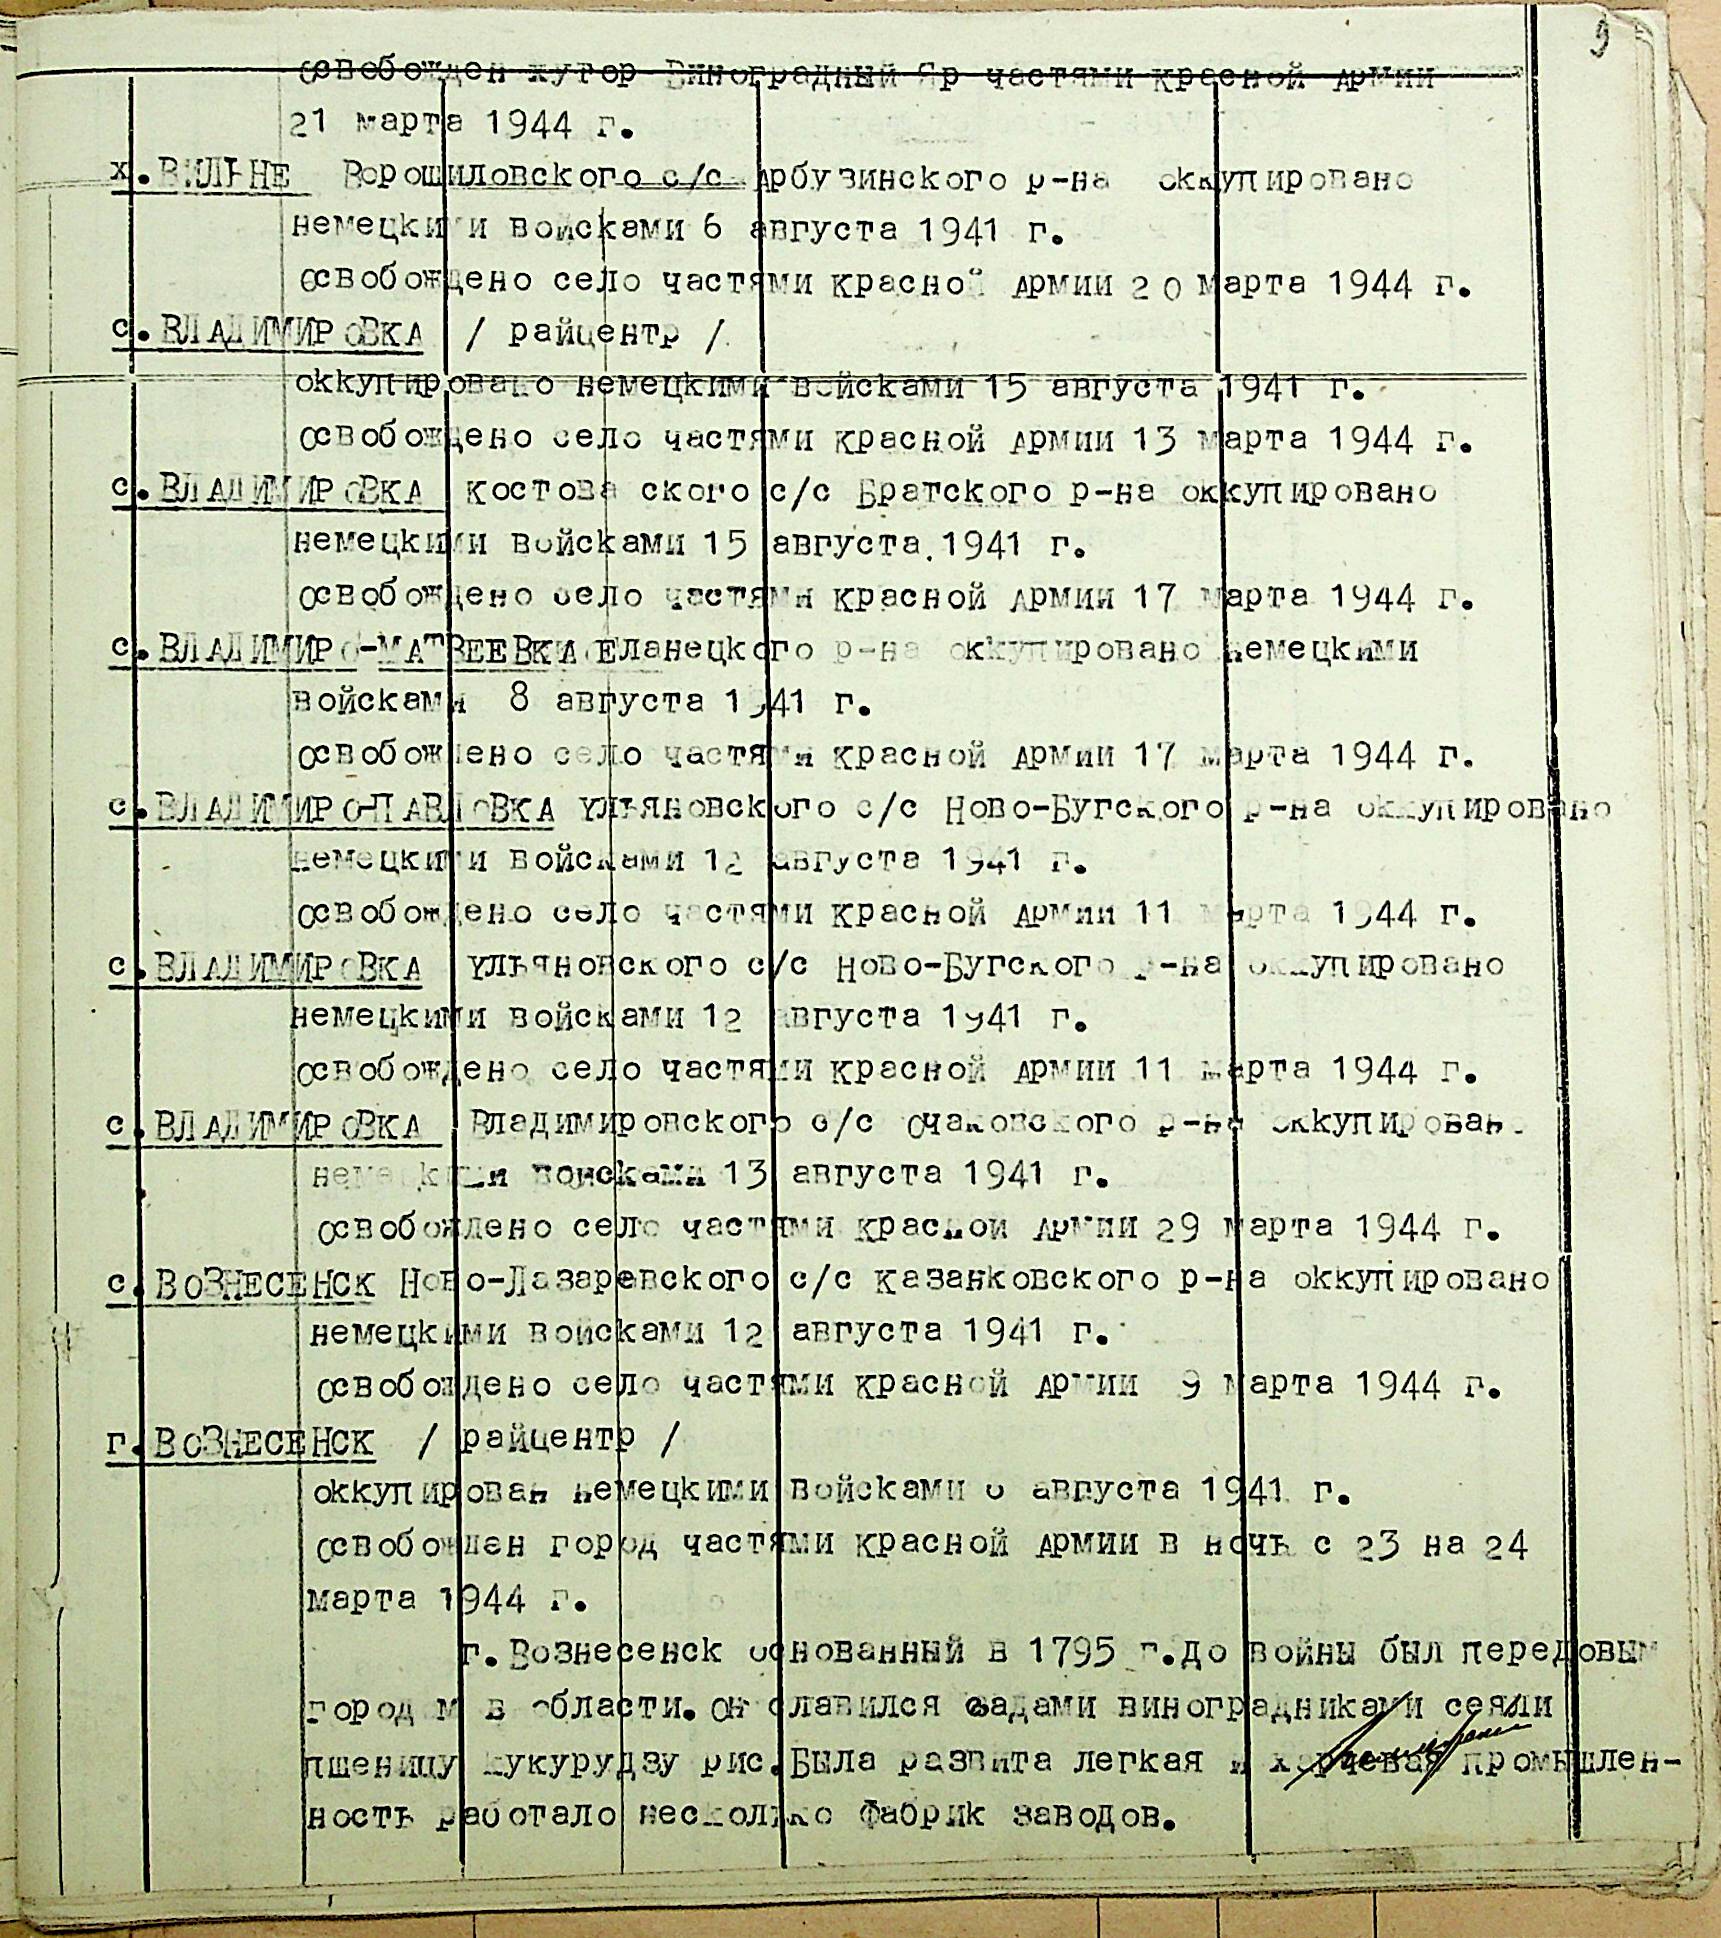 9
освобожден хутор Виноградный Яр частями красной Армии
21 марта 1944 г.
х.ВИЛЬНЕ Ворошиловского с/с Арбузинского р-на оккупировано
немецкими войсками 6 августа 1941 г.
освобождено село частями красной Армии 20 марта 1944 г.
с.ВЛАДИМИРОВКА / райцентр /
оккупировано немецкими войсками 15 августа 1941 г.
освобождено село частями красной Армии 13 марта 1944 г.
с.ВЛАДИМИРОВКА костова ского с/с Братского р-на оккупировано
немецкими войсками 15 августа.1941 г.
освобождено село частями красной Армии 17 марта 1944 г.
с.ВЛАДИМИРО-МАТВЕЕВКА Еланецкого р-на оккупировано немецкими
войсками 8 августа 1941 г.
освобождено село частями красной Армии 17 марта 1944 г.
с.ВЛАДИМИРО-ПАВЛОВКА Ульяновского с/с Ново-Бугского р-на оккупировано
немецкими войсками 12 августа 1941 г.
освобождено село частями красной Армии 11 марта 1944 г.
с.ВЛАДИМИРОВКА Ульяновского с/с Ново-Бугского р-на оккупировано
немецкими войсками 12 августа 1941 г.
освобождено село частями красной Армии 11 марта 1944 г.
с.ВЛАДИМИРОВКА Владимировского с/с Очаковского р-на оккупировано
немецкими войсками 13 августа 1941 г.
освобождено село частями красной Армии 29 марта 1944 г.
с.ВОЗНЕСЕНСК Ново-Лазаревского с/с казанковского р-на оккупировано
немецкими войсками 12 августа 1941 г.
освобождено село частями красной Армии 9 марта 1944 г.
г.ВОЗНЕСЕНСК / райцентр /
оккупирован немецкими войсками августа 1941 г.
освобожден город частями красной Армии в ночь с 23 на 24
марта 1944 г.
г.Вознесенск основанный в 1795 г.до войны был передовым
городом в области.он славился садами виноградниками сеяли
пшеницу кукурудзу рис.Была развита легкая и харчевая промышлен-
ность работало несколько фабрик заводов.